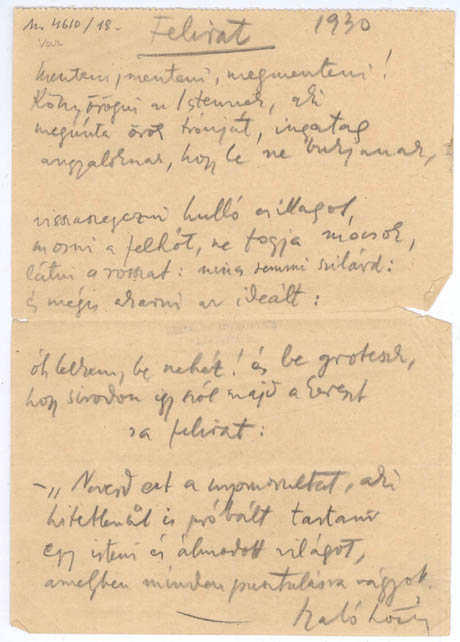 Ms 4610/18.
Felirat 1930
Menteni, menteni, megmenteni!
Könyörögni az Istennek, aki
megúnta örök trónját, ingatag
angyaloknak, hogy le ne bukjanak,
visszaszegezni hulló csillagot,
mosni a felhőt, ne fogja mocsok,
látni a rosszat: nincs semmi szilárd:
és mégis akarni az ideált:
óh lelkem, be nehéz! és be groteszk,
hogy sírodon így szól majd a kereszt
s a felirat:
– „Nevesd ezt a nyomorultat, aki
hitetlenűl is próbált tartani
egy isteni és álmodott világot,
amelyben minden pusztulásra vágyott.
Szabó Lőrinc